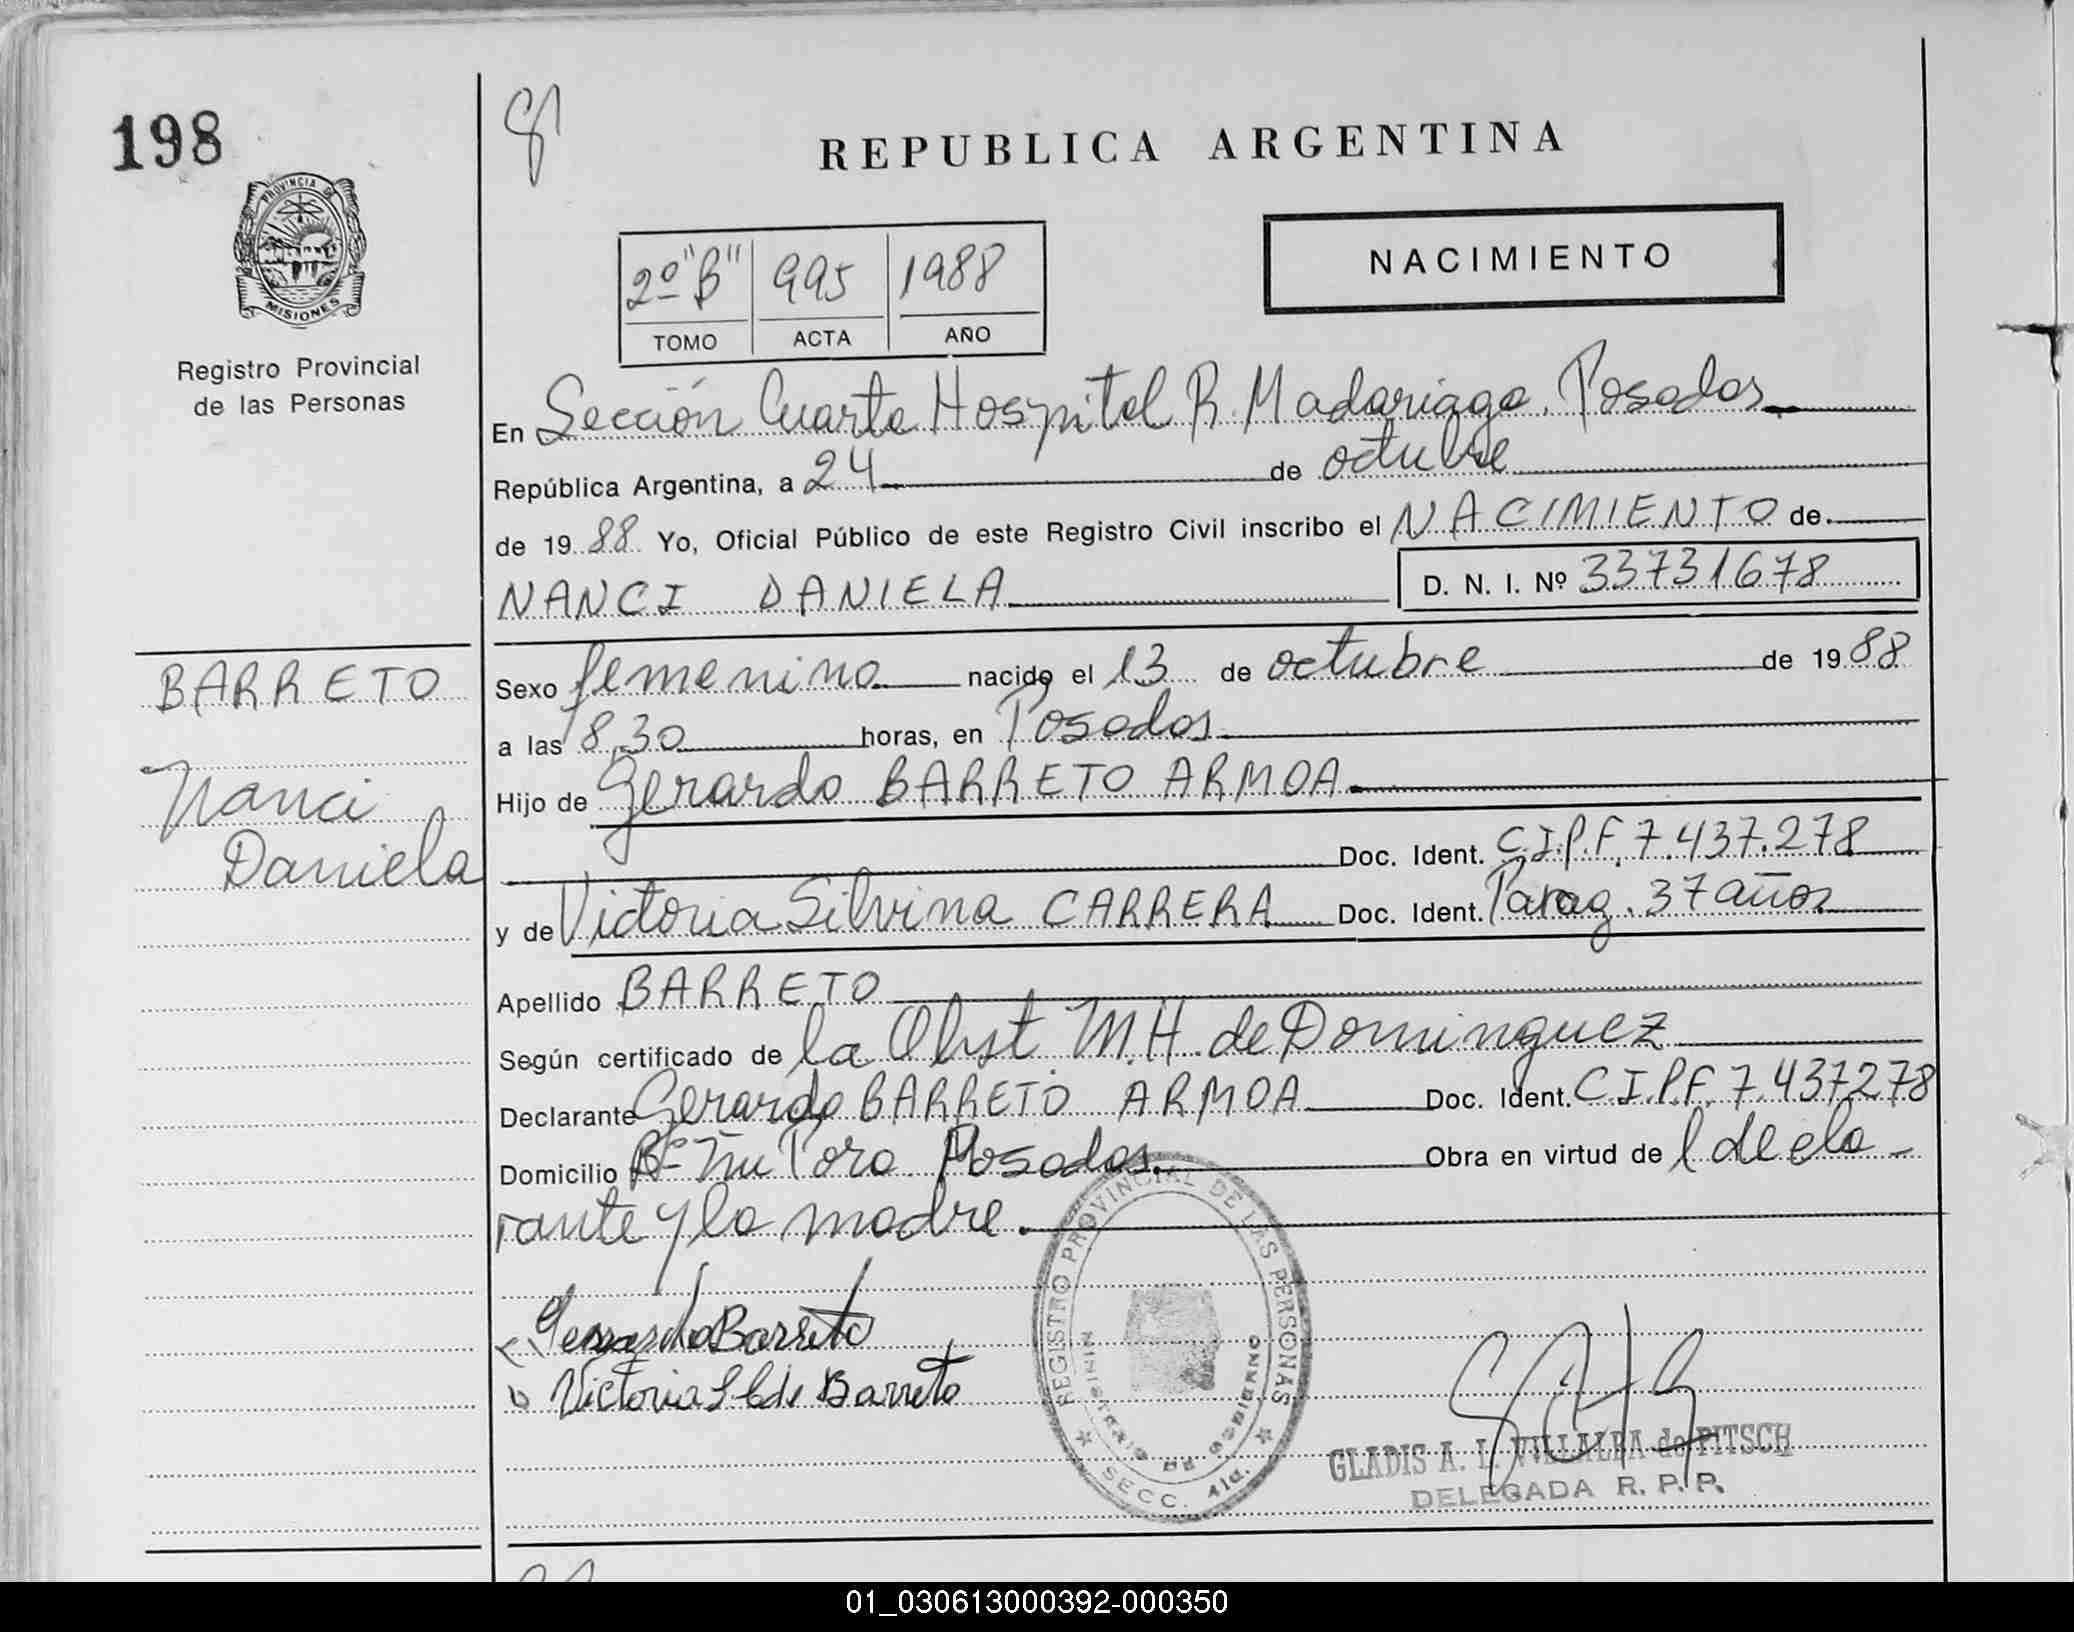 198
PROVINCIA DE
MISIONES
Registro Provincial
de las Personas
REPUBLICA ARGENTINA
NACIMIENTO
2º "B" 995 1988
TOMO ACTA AÑO
En Sección Cuarta Hospital R. Madariaga. Posadas
República Argentina, a 24 de octubre
de 1988 Yo, Oficial Público de este Registro Civil inscribo el NACIMIENTO de
NANCI DANIELA D. N. I. Nº 33731678
BARRETO
Nanci
Daniela
Sexo femenino nacido el 13 de octubre de 1988
a las 8,30 horas, en Posadas
Hijo de Gerardo BARRETO ARMOA
Doc. Ident. C.I.P.F. 7.437.278
y de Victoria Silvina CARRERA Doc. Ident. Parag. 37 años
Apellido BARRETO
Según certificado de la Obst. M.H. de Dominguez
Declarante Gerardo BARRETO ARMOA Doc. Ident. C.I.P.F. 7.437278
Domicilio Bº Porá Posadas Obra en virtud de l decla-
rante y la madre.
Gerardo Barreto
Victoria de Barreto
REGISTRO PROVINCIAL DE LAS PERSONAS
MINISTERIO DE GOBIERNO
SECC. 4ta.
GLADIS A. L. VILLALBA de PITSCH
DELEGADA R. P. P.
01_030613000392-000350